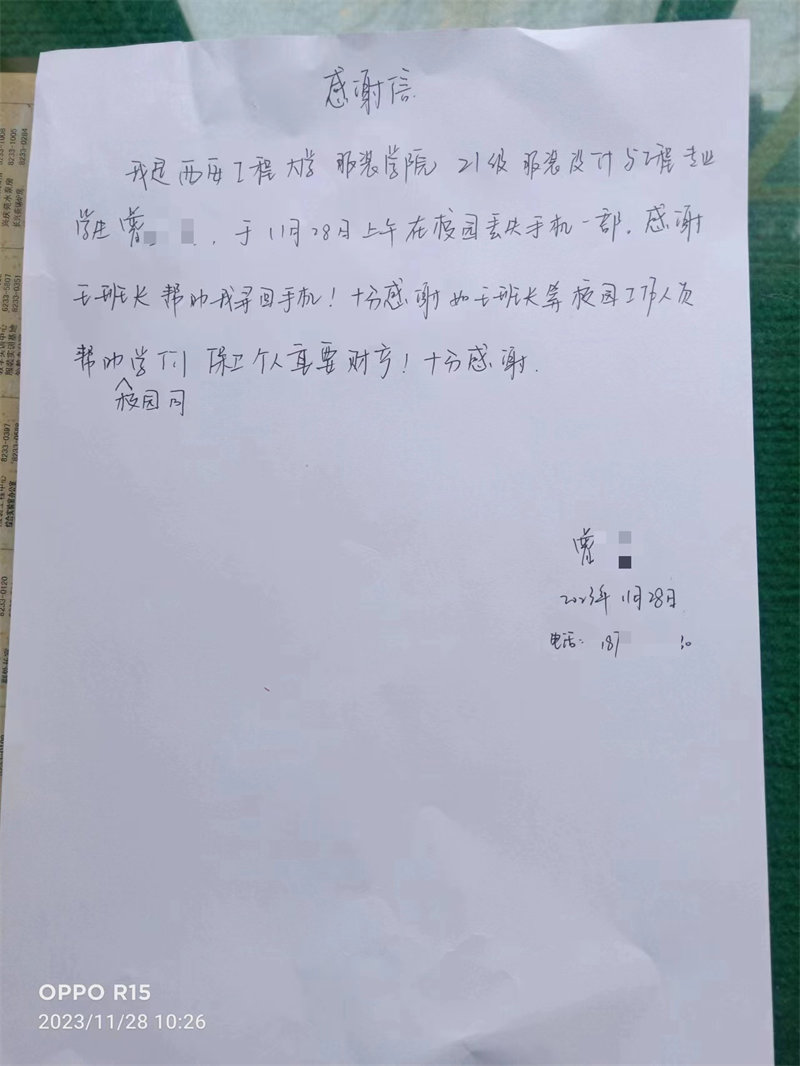 感谢信
我是西安工程大学 服装学院 21级 服装设计与工程专业
学生曾 , 于11月28日上午在校园丢失手机一部. 感谢
王班长帮助我寻回手机! 十分感谢如王班长等校园工作人员
帮助学们 保卫个人重要财产! 十分感谢.
校园内
曾
2023年11月28日
电话: 187 30
8233-1008
8233-1005
8233-0284
8233-0397
综合实验室办公室
8233-0120
OPPO R15
2023/11/28 10:26